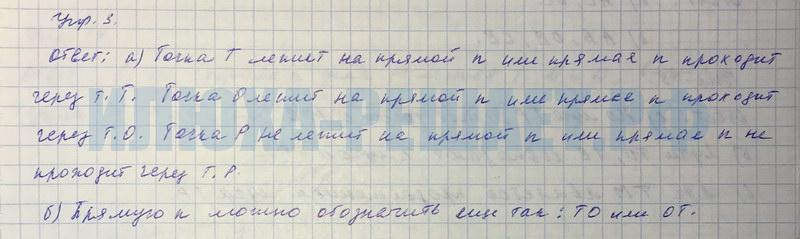 Упр. 3.
Ответ: а) Точка Т лежит на прямой n или прямая n проходит
через т. Т. Точка О лежит на прямой n или прямая n проходит
через т. О. Точка Р не лежит на прямой n или прямая n не
проходит через т. Р.
б) Прямую n можно обозначить еще так: ТО или ОТ.